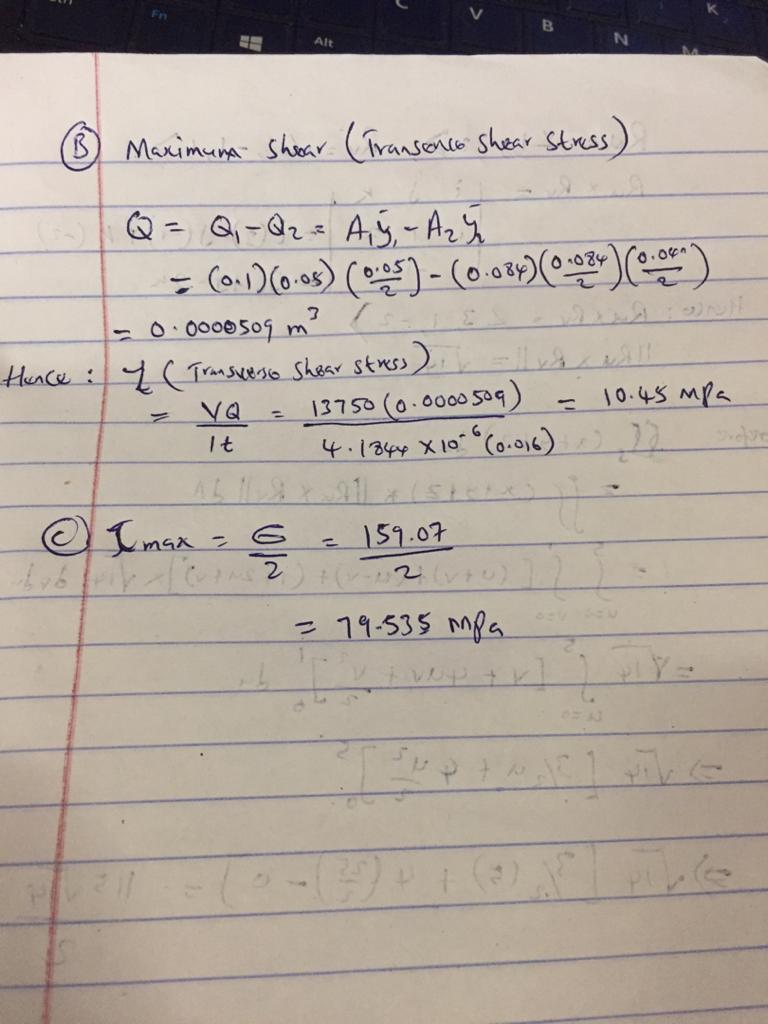 Fn
Alt
C
V
B
N
M
K
Ⓑ Maximum Shear (Transerse Shear Stress)
Q = Q₁ - Q₂ = A₁ȳ₁ - A₂ȳ₂
= (0.1)(0.05)(0.05/2) - (0.084)(0.084/2)(0.042/2)
= 0.0000509 m³
Hence : τ (Transverse Shear Stress)
= VQ/It = 13750(0.0000509)/4.1844 × 10⁻⁶(0.016) = 10.45 MPa
Ⓒ τmax = σ/2 = 159.07/2
= 79.535 MPa